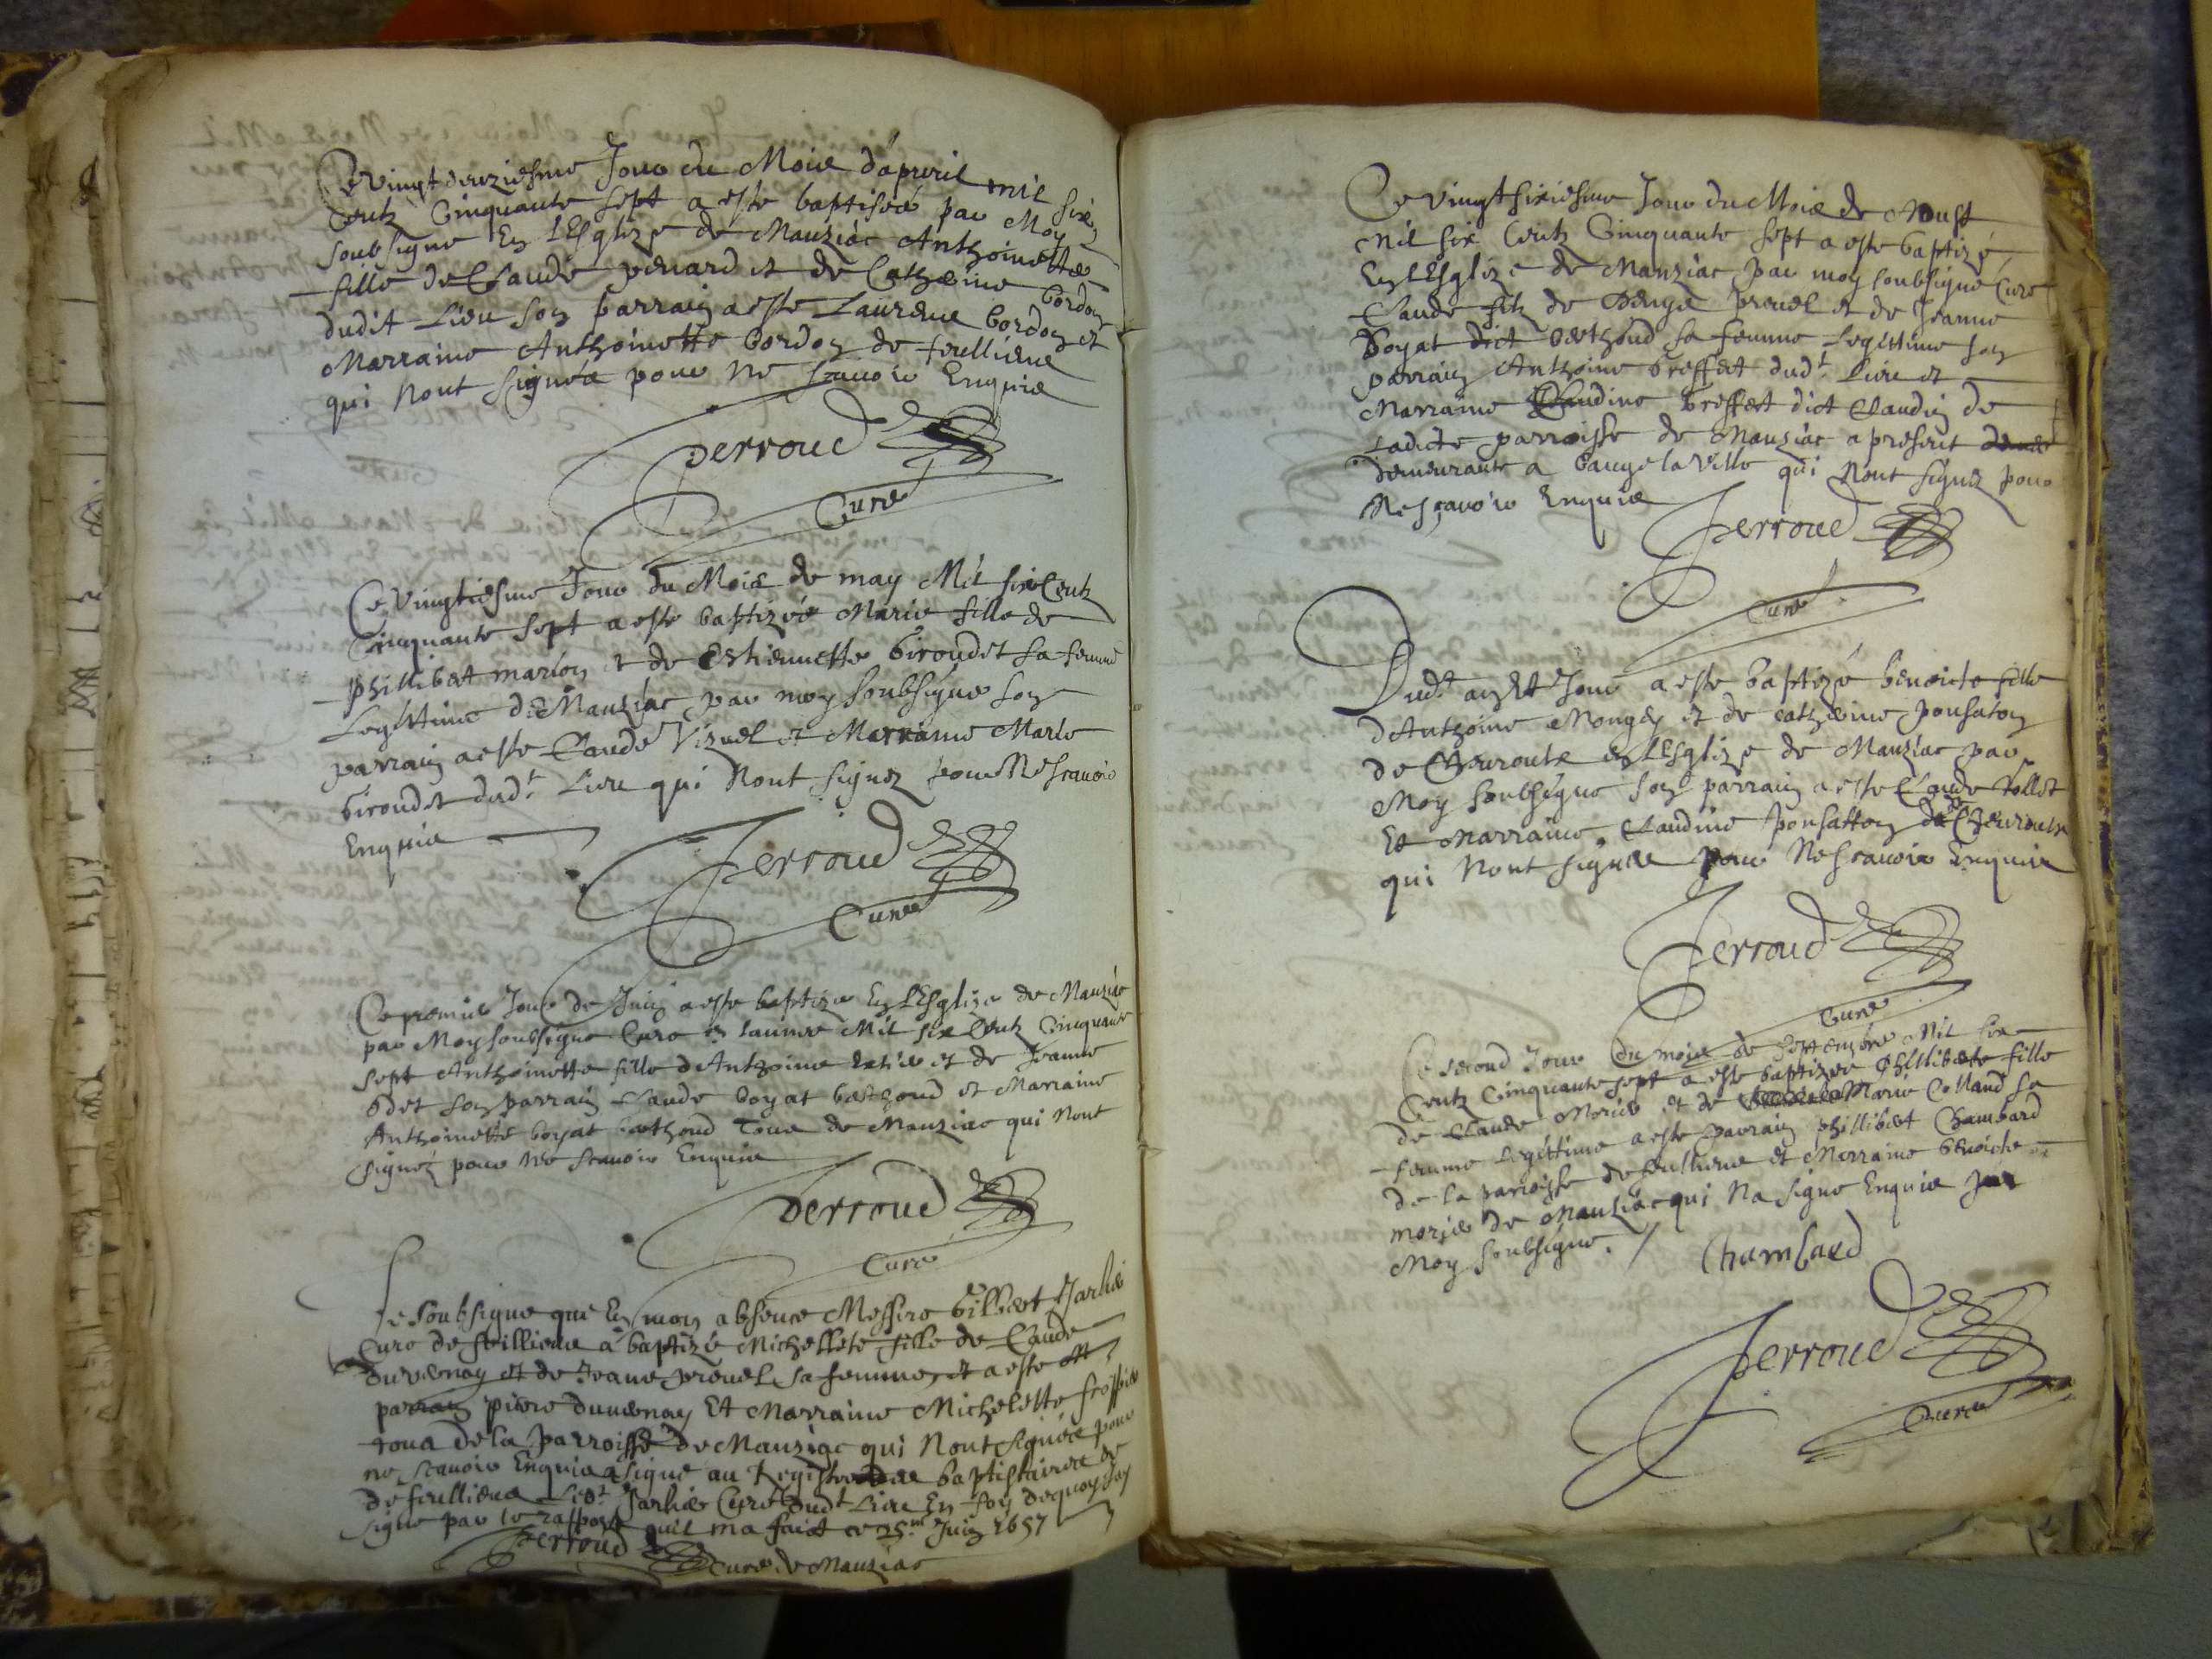 Ce vingt deuziesme Jour du Mois d'apvril mil six
Centz Cinquante sept a este baptisée par Moy
soubsigne En LEsglize de Manziac Anthoinette
fille de Claude penard et de Catherine bordon
dudit Lieu son parrain a este Laurens bordon et
Marraine Anthoinette bordon de feulliens
qui Nont signés pour ne scavoir Enquis
perroud
Curé
Ce Vingtiesme Jour du Mois de may Mil six Centz
Cinquante sept a este baptizée Marie fille de
phillibert marion et de Estiennette Giroudet sa femme
Legittime de Manziac par moy soubsigne son
parrain a este Claude Vizuel et Marraine Marie
Giroudet dudt Lieu qui Nont signez pour Ne scavoir
Enquis
Perroud
Curé
Ce premier Jour de Juin a este baptize En LEsglize de Manziac
par Moy soubsigne Cure en lannee Mil six Centz Cinquante
sept Anthoinette fille d Anthoine et de Jeanne
odet son parrain Claude boyat berthoud et Marraine
Anthoinette boyat berthoud Tous de Manziac qui Nont
signéz pour Ne scavoir Enquis
Perroud
Curé
Je soubsigne que En mon absence Messire Gilbert Jarlié
Cure de feilliens a baptizé Michellete fille de Claude
Duvernay et de Jeane prevel sa femme et a este
parrain piere duvernay Et Marraine Michelette
tous de la parroisse de Manziac qui Nont Signés pour
ne scavoir Enquis a signé au Registre des baptistaires de
de feulliens Ledt Jarlié Curé dudt Lieu En foy dequoy Jay
signe par le rapport quil ma faict ce 25me Juin 1657
Perroud Curé de Manziac
Ce vingt sixiesme Jour du Mois de Aoust
Mil six Centz Cinquante sept a este baptizé
En LEsglize de Manziac par moy soubsigné Curé
Claude filz de Benys prevel et de Jeanne
Boyat dict berthoud sa femme Legittime son
parrain Anthoine breffert dudt Lieu et
Marraine Claudine breffert dict Claudin de
Ladicte parroisse de Manziac a present
demeurante a baugé la Ville qui Nont signez pour
Ne scavoir Enquis
Perroud
Curé
Dudt an et Jour a este baptizé benoicte fille
d Anthoine Mongey et de catherine ponsaton
de Chevroux en LEsglize de Manziac par
Moy soubsigne son parrain a este Claude tollet
Et Marraine Claudine ponsatton de Chevroux
qui Nont signés pour Ne scavoir Enquis
Perroud
Curé
Ce second Jour du mois de septembre Mil six
Centz Cinquante sept a este baptizee Phillibete fille
de Claude Morier et de Marie Colland sa
femme Legittime a este parrain phillibert Chambard
de la parroisse de feulliens et Marraine benoicte
morier de Manziac qui Na signe Enquis par
Moy soubsigne. /
Chambard
Perroud
Curé